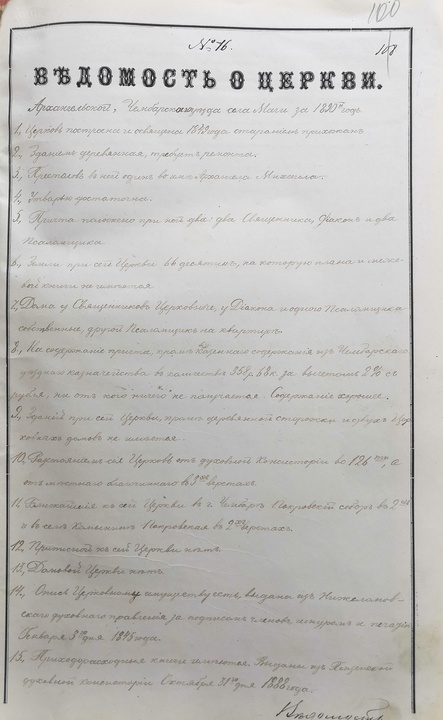 100
№ 16.
ВѢДОМОСТЬ О ЦЕРКВИ.
Архангельской, Чембарскаго уѣзда села Мачи за 1890й годъ
1, Церковь построена и освящена 1849 года стараніемъ прихожанъ
2, Зданіемъ деревянная, требуетъ ремонта.
3, Престолъ въ ней одинъ во имя Архангела Михаила.
4, Утварью достаточна.
5, Причта положено при ней два: два Священника, Діаконъ и два
Псаломщика
6, Земли при сей Церкви десятинъ, на которую плана и меже-
вой книги не имѣется
7, Дома у Священниковъ Церковные, у Діакона и одного Псаломщика
собственные, другой Псаломщикъ на квартирѣ.
8, На содержаніе причта, кромѣ казеннаго содержанія изъ Чембарскаго
уѣзднаго казначейства въ количествѣ 358 р. 68 к. за вычетомъ 2% съ
рубля, ни отъ кого ничего не получается. Содержаніе хорошее.
9, Зданій при сей Церкви, кромѣ деревянной сторожки и двухъ цер-
ковныхъ домовъ не имѣется
10, Разстояніемъ сія Церковь отъ духовной Консисторіи въ 126 а
отъ мѣстнаго благочиннаго въ верстахъ.
11, Ближайшія къ сей Церкви въ г. Чембарѣ Покровскій соборъ въ
и въ селѣ Покровская въ верстахъ
12, Приписной къ сей Церкви нѣтъ
13, Домовой Церкви нѣтъ
14, Опись Церковному имуществу есть, выдана изъ Нижеломов-
скаго духовнаго правленія за подписью членовъ и печатью
Января 3го дня 1845 года.
15, Приходорасходныя книги имѣются. Выданы изъ Пензенской
духовной консисторіи Октября 31го дня 1888 года.